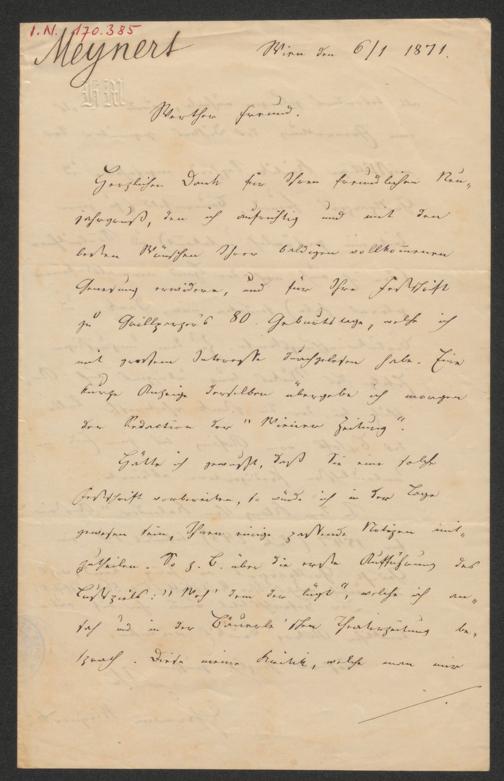 I.N. 170.385
Meynert
Wien den 6/1 1871.
HM
Werther Freund.
Herzlichen Dank für Ihren freundlichen Neu-
jahrsgruß, den ich aufrichtig und mit den
besten Wünschen Ihrer baldigen vollkommenen
Genesung erwidere, und für Ihre Festschrift
zu Grillparzer's 80. Geburtstage, welche ich
mit grossem Interesse durchgelesen habe. Eine
kurze Anzeige derselben übergebe ich morgen
der Redaction der "Wiener Zeitung".
Hätte ich gewußt, daß Sie eine solche
Festschrift vorbereiten, so würde ich in der Lage
gewesen sein, Ihnen einige passende Notizen mit-
zutheilen. So z. B. über die erste Aufführung des
Lustspiels: "Weh' dem der lügt", welche ich an-
sah und in der Bäuerle'schen Theaterzeitung be-
sprach. Diese meine Kritik, welche man mir